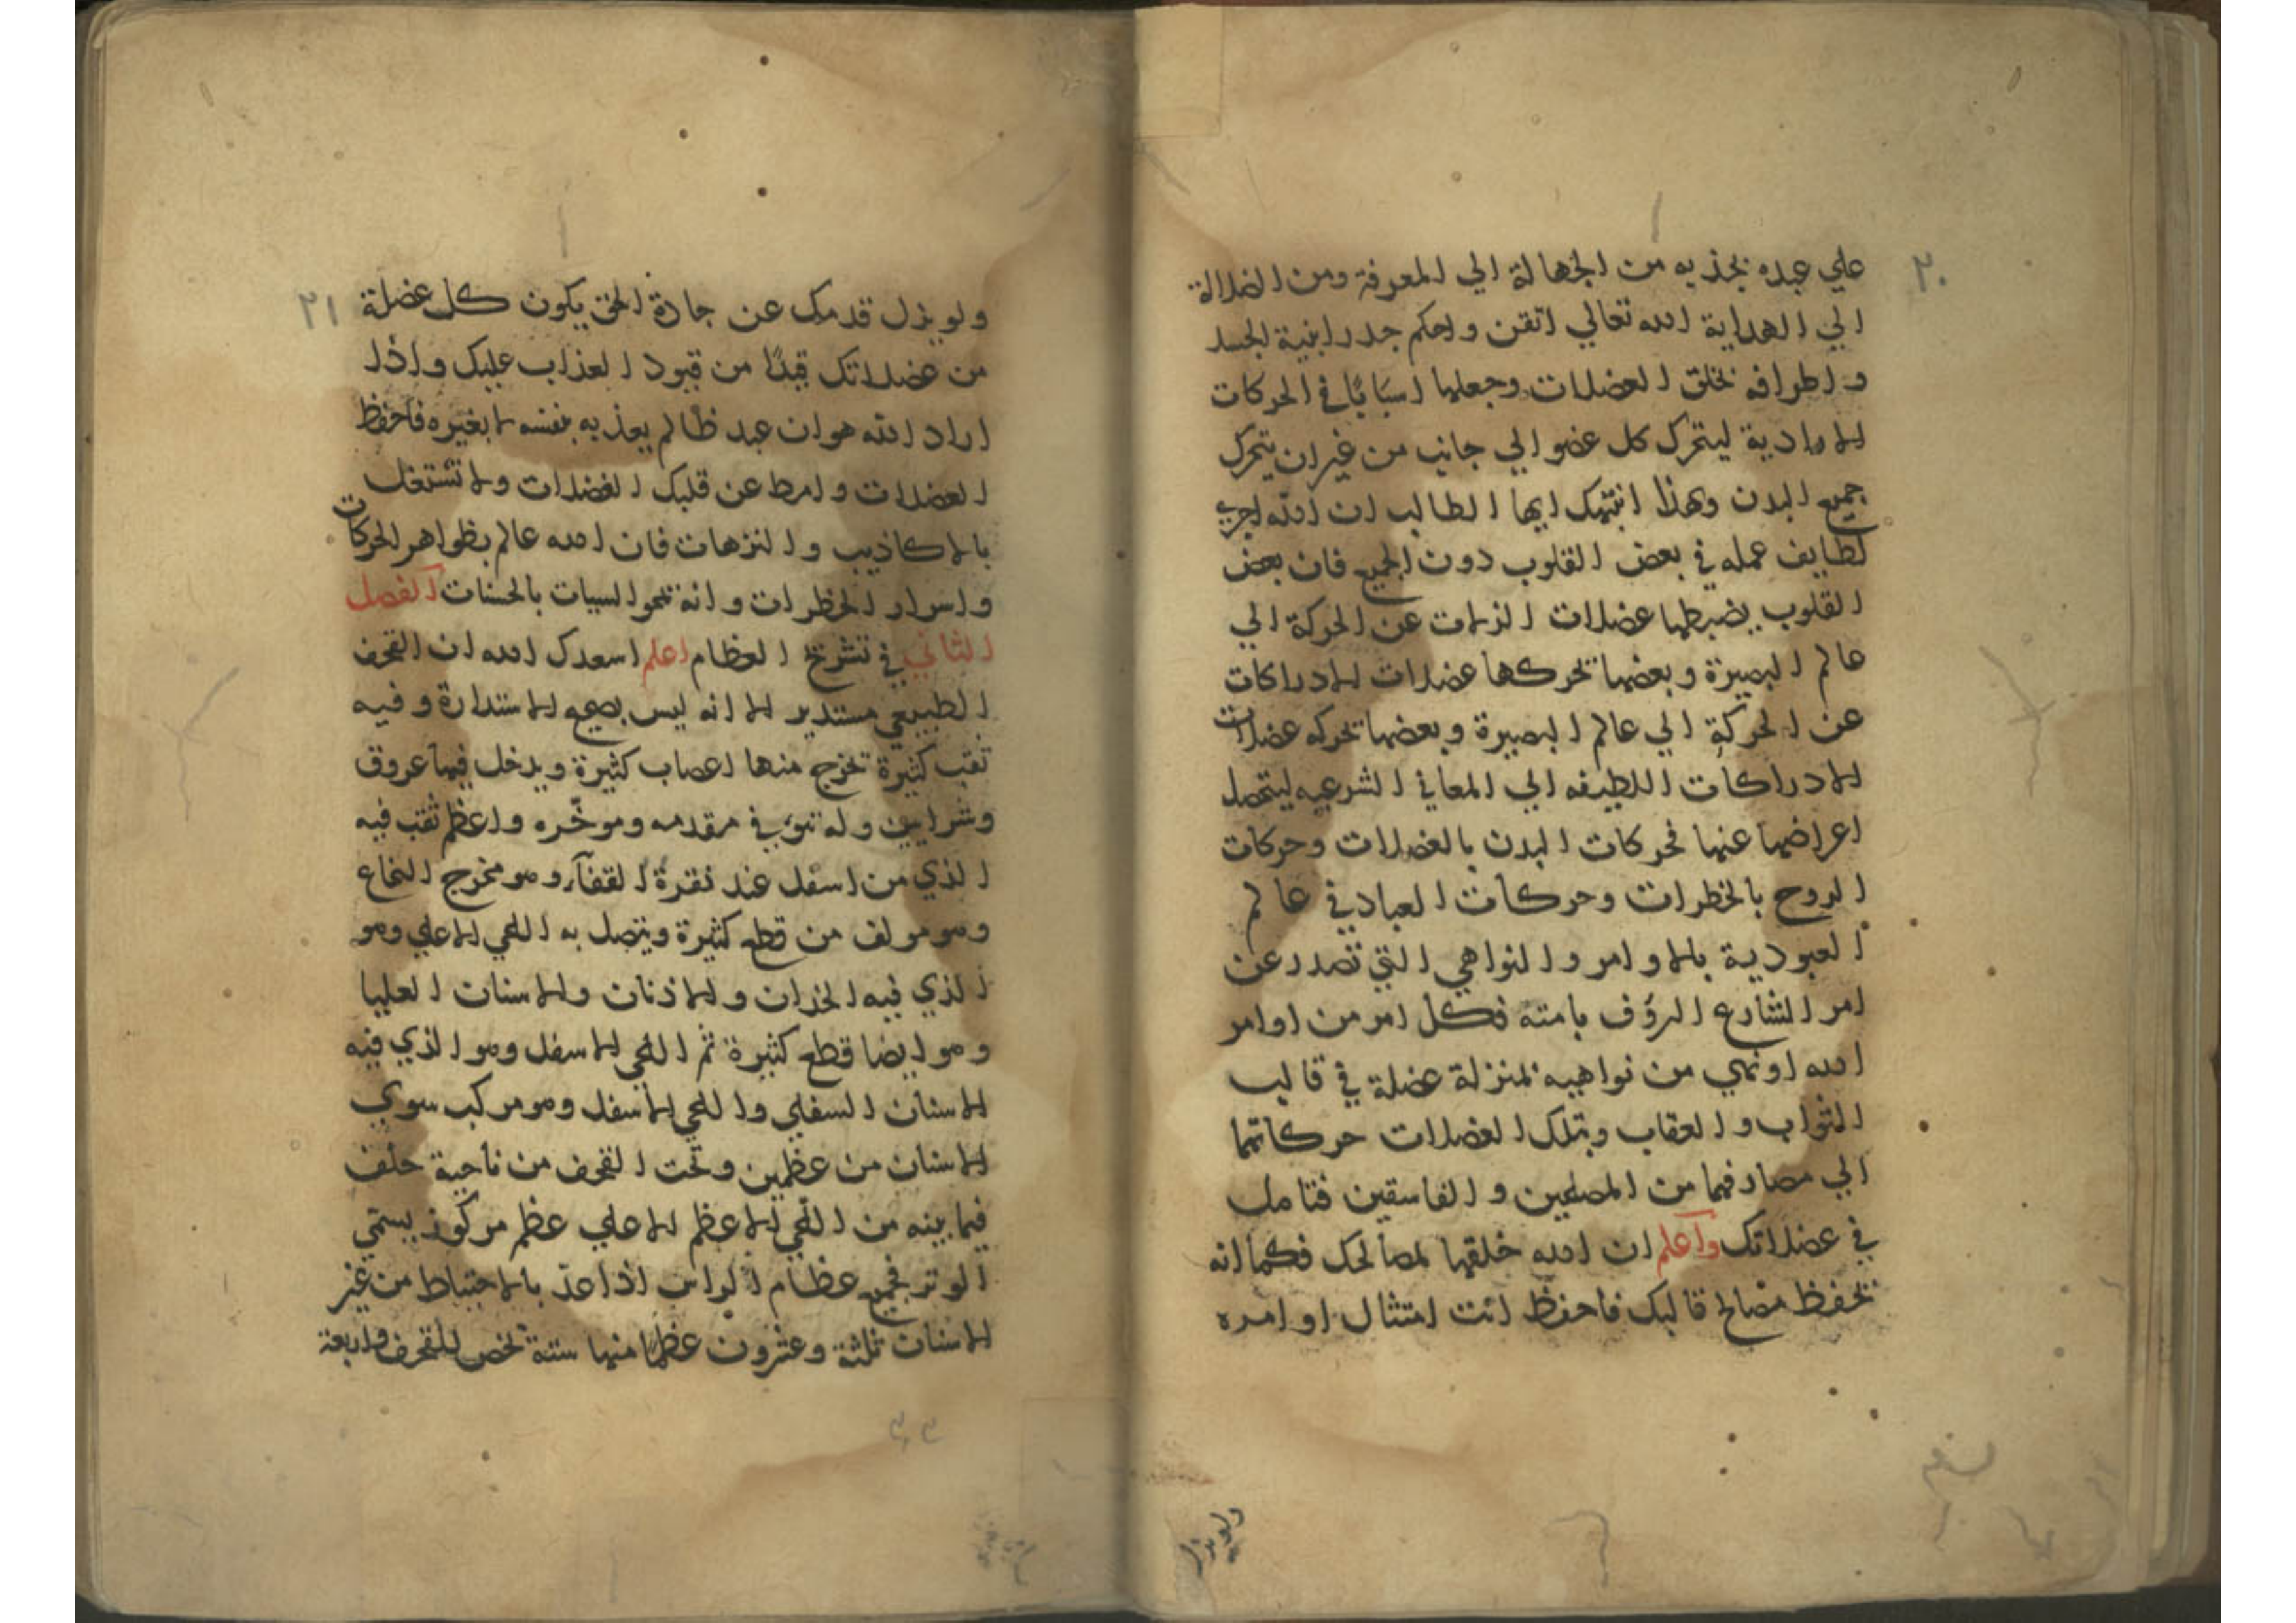 ٢٠
علي عبده بجذبه من الجهالة الي المعرفة ومن الضلالة
الي الهداية الله تعالي اتقن واحكم جدر ابنية الجسد
واطرافه بخلق العضلات وجعلها اسبابًا في الحركات
الارادية ليتحرك كل عضو الي جانب من غير ان يتحرك
جميع البدن وبهذا انبئك ايها الطالب ان الله اجري
لطايف عمله في بعض القلوب دون الجميع فان بعض
القلوب يضبطها عضلات الزلات عن الحركة الي
عالم البصيرة وبعضها تحركها عضلات الادراكات
عن الحركة الي عالم البصيرة وبعضها تحركه عضلات
الادراكات اللطيفه الي المعاني الشرعيه ليتحصل
اعراضها عنها فحركات البدن بالعضلات وحركات
الروح بالخطرات وحركات العباد في عالم
العبودية بالاوامر والنواهي التي تصدر عن
امر الشارع الرؤف بامته فكل امر من اوامر
الله او نهي من نواهيه بمنزلة عضلة في قالب
الثواب والعقاب وبتلك العضلات حركاتهما
الي مصادفهما من المصلحين والفاسقين فتامل
في عضلاتك واعلم ان الله خلقها لمصالحك فكما انه
يحفظ مصالح قالبك فاحفظ انت امتثال اوامره
ولو يزل
٢١
ولو يزل قدمك عن جادة الحق يكون كل عضلة
من عضلاتك قيدًا من قيود العذاب عليك واذا
اراد الله هوان عبد ظالم يعذبه بنفسه لا بغيره فاحفظ
العضلات وامط عن قلبك الفضلات ولا تشتغل
بالاكاذيب والنزهات فان الله عالم بظواهر الحركات
واسرار الخطرات وانه يمحوا السيات بالحسنات الفصل
الثاني في تشريح العظام اعلم اسعدك الله ان القحف
الطبيعي مستدير الا انه ليس بصحيح الاستدارة وفيه
ثقب كثيرة تخرج منها اعصاب كثيرة ويدخل فيها عروق
وشرايين وله نتوء في مقدمه وموخّره واعظم ثقب فيه
الذي من اسفل عند نقرة القفآء وهو مخرج النخاع
وهو مولف من قطع كثيرة ويتصل به اللحي الاعلي وهو
الذي فيه الخدان والاذنان والاسنان العليا
وهو ايضا قطع كثيرة ثم اللحي الاسفل وهو الذي فيه
الاسنان السفلي واللحي الاسفل وهو مركب سوي
الاسنان من عظمين وتحت القحف من ناحية خلف
فيما بينه من اللحي الاعظم الاعلي عظم مركوز يسمّي
الوتر فجميع عظام الراس اذا عدّ بالاحتياط من غير
الاسنان ثلثة وعشرون عظما منها ستة تخص للقحف واربعة